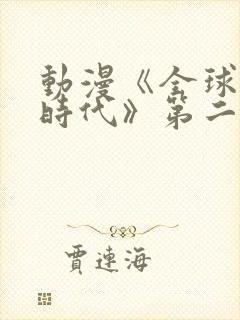 動漫《全球
時代》第二
賈連海